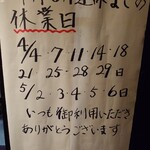 休業日
4/4・7・11・14・18
21・25・28・29日
5/2・3・4・5・6日
いつも御利用いただき
ありがとうございます